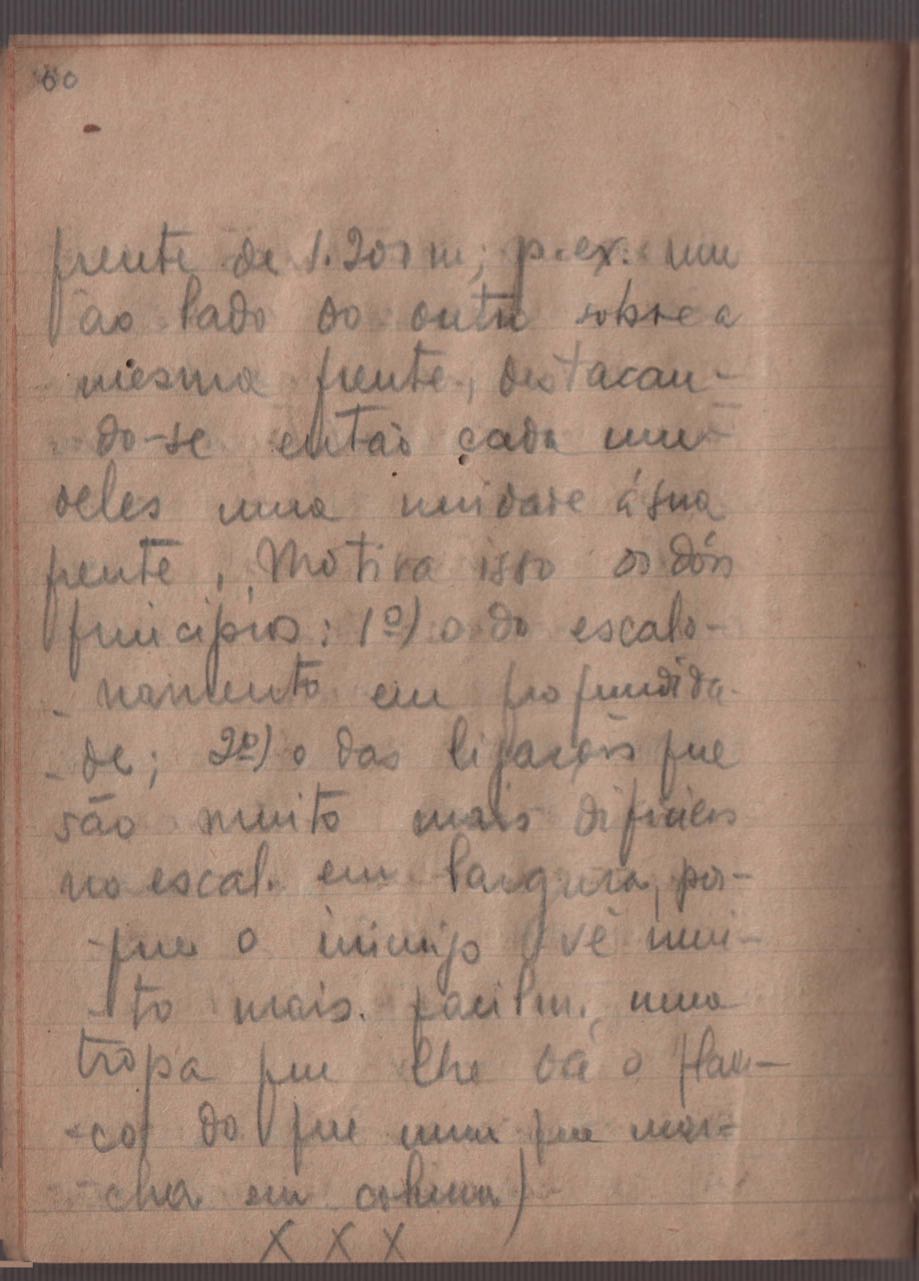 60
frente de 1.200 m; p. ex. um
ao lado do outro sobre a
mesma frente, destacan-
do-se então cada um
deles uma unidade á sua
frente. Motiva isso os dois
principios: 1º) o do escalo-
namento em profundida-
de; 2º) o das ligações que
são muito mais dificieis
no escal. em largura, por-
que o inimigo vê mui-
to mais. facilm. uma
tropa que lhe dá o flan-
co do que uma que mar-
cha em coluna)
X X X